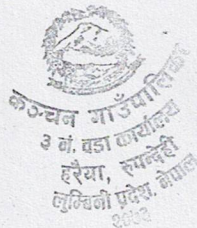 कञ्चन गाउँपालिका
३ नं. वडा कार्यालय
हरैया, रुपन्देही
लुम्बिनी प्रदेश, नेपाल